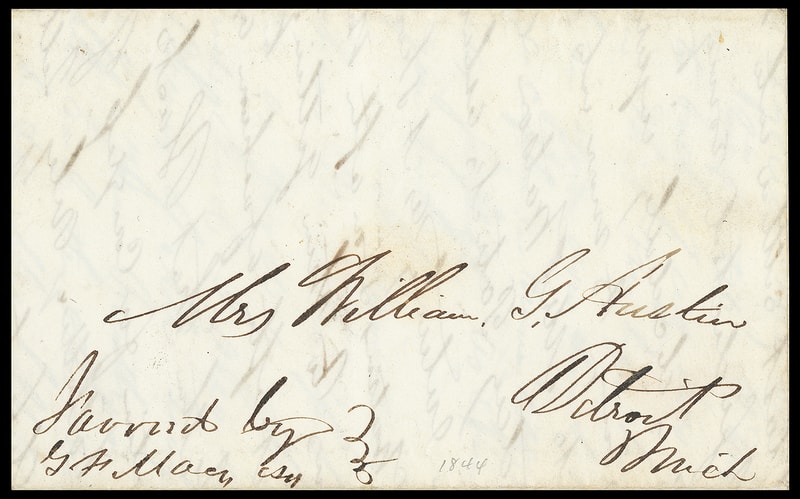 Mrs William. G. Austin
Detroit
Mich
Favored by
G F Macy Esq
1844